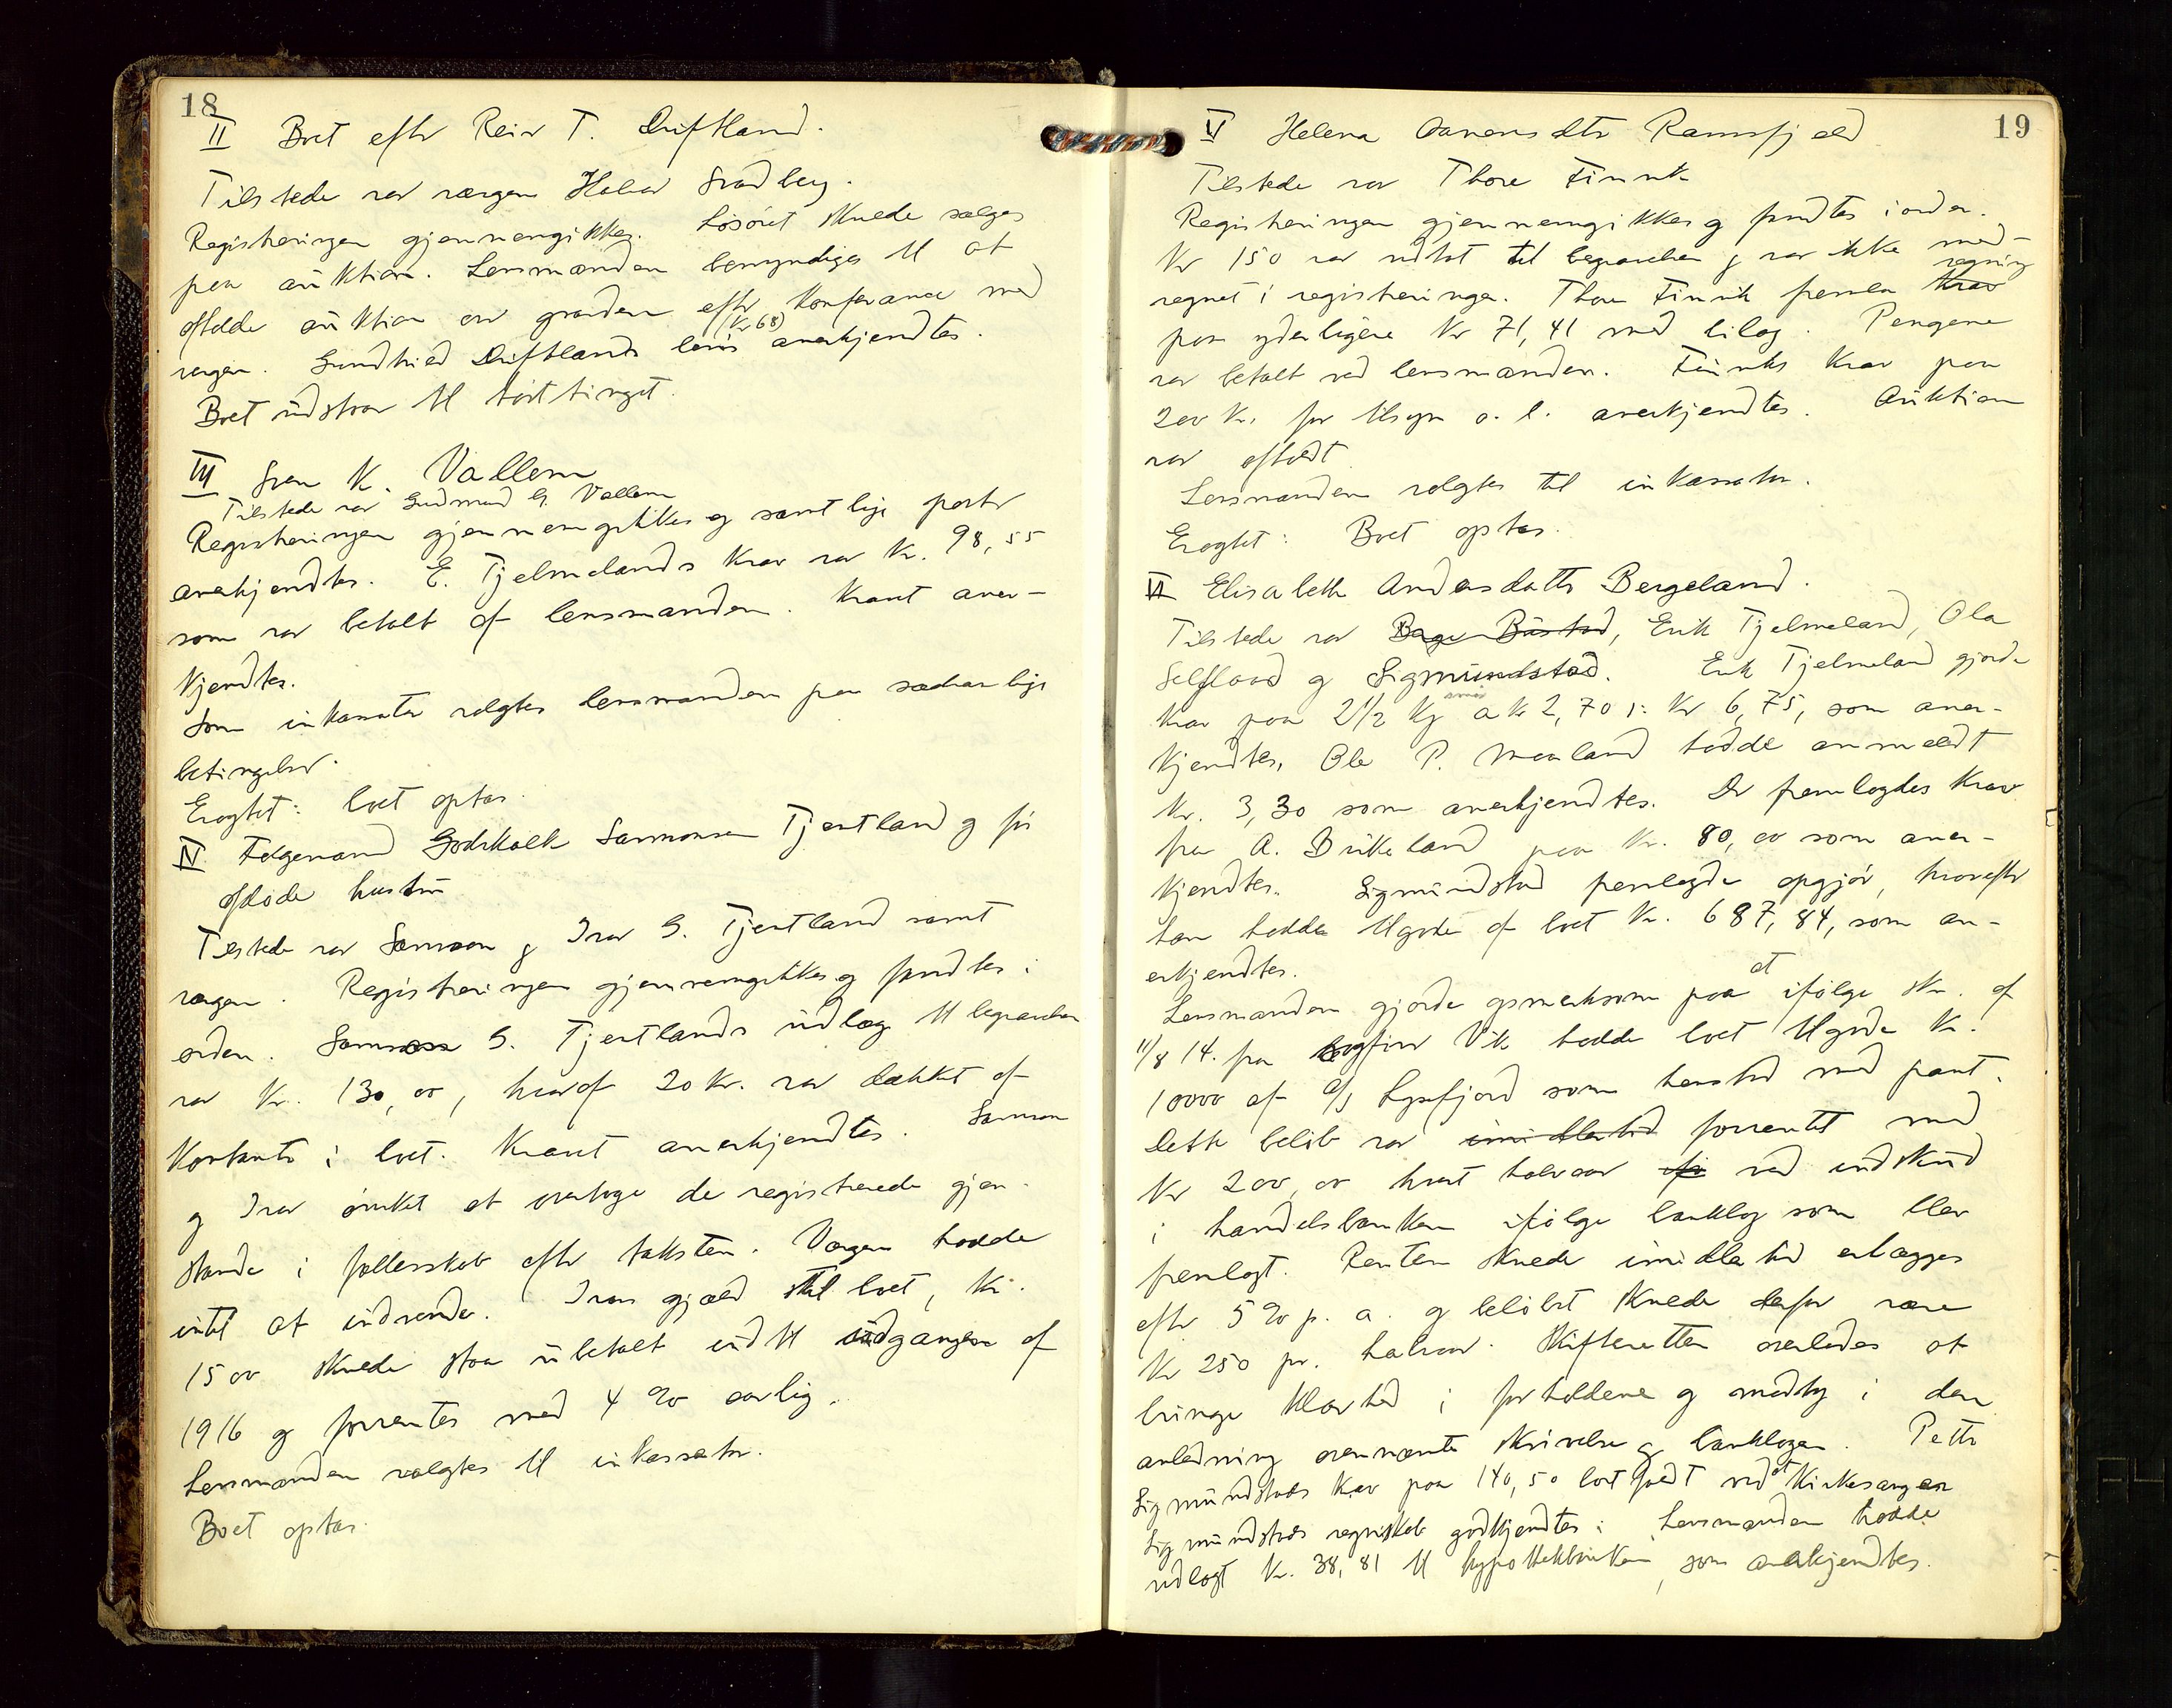 18
II Boet efter Reier T. Driftland.
Tilstede var værgen Halvor Gradberg.
Registreringen gjennemgikkes. Løsøret skulde sælges
paa auktion. Lensmanden bemyndiges til at
afholde auktion over gaarden efter konferance med
vergen. Gundhild Driftlands løn (Kr 68) anerkjendtes.
Boet udstaar til høsttinget.
III Sven K. Vallem
Tilstede var Gudmund G. Vallem
Registreringen gjennemgikkes og samtlige poster
anerkjendtes. E. Tjelmelands krav var kr. 98,55
som var betalt af lensmanden. Kravet aner-
kjendtes.
Som inkassator valgtes lensmanden paa sædvanlige
betingelser.
Eragtet: boet optas.
IV Følgemand Godskalk Samsonsen Tjentland og før
afdøde hustru
Tilstede var Samson og Ivar G. Tjentland samt
værgen. Registreringen gjennemgikkes og fandtes i
orden. Samson G. Tjentlands udlæg til begravelsen
var kr. 130,00, hvoraf 20 kr. var dækket af
kontanter i boet. Kravet anerkjendtes. Samson
og Ivar ønsket at overtage de registrerede gjen-
stande i fællesskab efter taksten. Værgen hadde
intet at indvende. Ivars gjæld til boet, kr.
1500 skulde staa ubetalt indtil udgangen af
1916 og forrentes med 4 % aarlig.
Lensmanden valgtes til inkassator.
Boet optas.
19
V Helena Aanensdtr Ramsfjeld
Tilstede var Thore Finnk
Registreringen gjennemgikkes og fandtes i orden.
Kr 150 var udtat til begravelsen og var ikke med-
regnet i registreringen. Thore Finnk fremla krav regning
paa yderligere Kr 71,41 med bilag. Pengene
var betalt ved lensmanden. Finnks krav paa
200 kr. for tilsyn o. l. anerkjendtes. Auktion
var afholdt
Lensmanden valgtes til inkassator.
Eragtet: Boet optas.
VI Elisabeth Andersdatter Bergeland.
Tilstede var Bage Bustad, Erik Tjelmeland, Ola
Selfland og Sigmundstad. Erik Tjelmeland gjorde
krav paa 2 1/2 Kg smør a kr 2,70 ɔ: Kr 6,75, som aner-
kjendtes. Ole P. Maaland hadde anmeldt
Kr. 3,30 som anerkjendtes. Der fremlagdes krav
fra A. Birkeland paa kr. 80,00 som aner-
kjendtes. Sigmundstad fremlagde opgjør, hvorefter
han hadde tilgode af boet kr. 687,84, som an-
erkjendtes.
Lensmanden gjorde opmerksom paa at ifølge skr. af
11/8 14. fra sagfører Vik hadde boet tilgode kr.
10000 af A/S Lysefjord som henstod med pant.
Dette beløb var imidlertid forrentet med
Kr 200,00 hvert halvaar for ved indskud
i handelsbanken ifølge bankbog som blev
fremlagt. Renten skulde imidlertid erlægges
efter 5 % p. a. og beløbet skulde derfor være
Kr 250 pr. halvaar. Skifteretten overlodes at
bringe klarhed i forholdene og medtog i den
anledning ovennævnte skrivelse og bankbogen. Petter
Sigmundstads krav paa 140,50 bortfaldt ved at Kirkesanger
Sigmundstads regnskab godkjendtes. Lensmanden hadde
udlagt kr. 38,81 til hypothekbanken, som anerkjendtes.